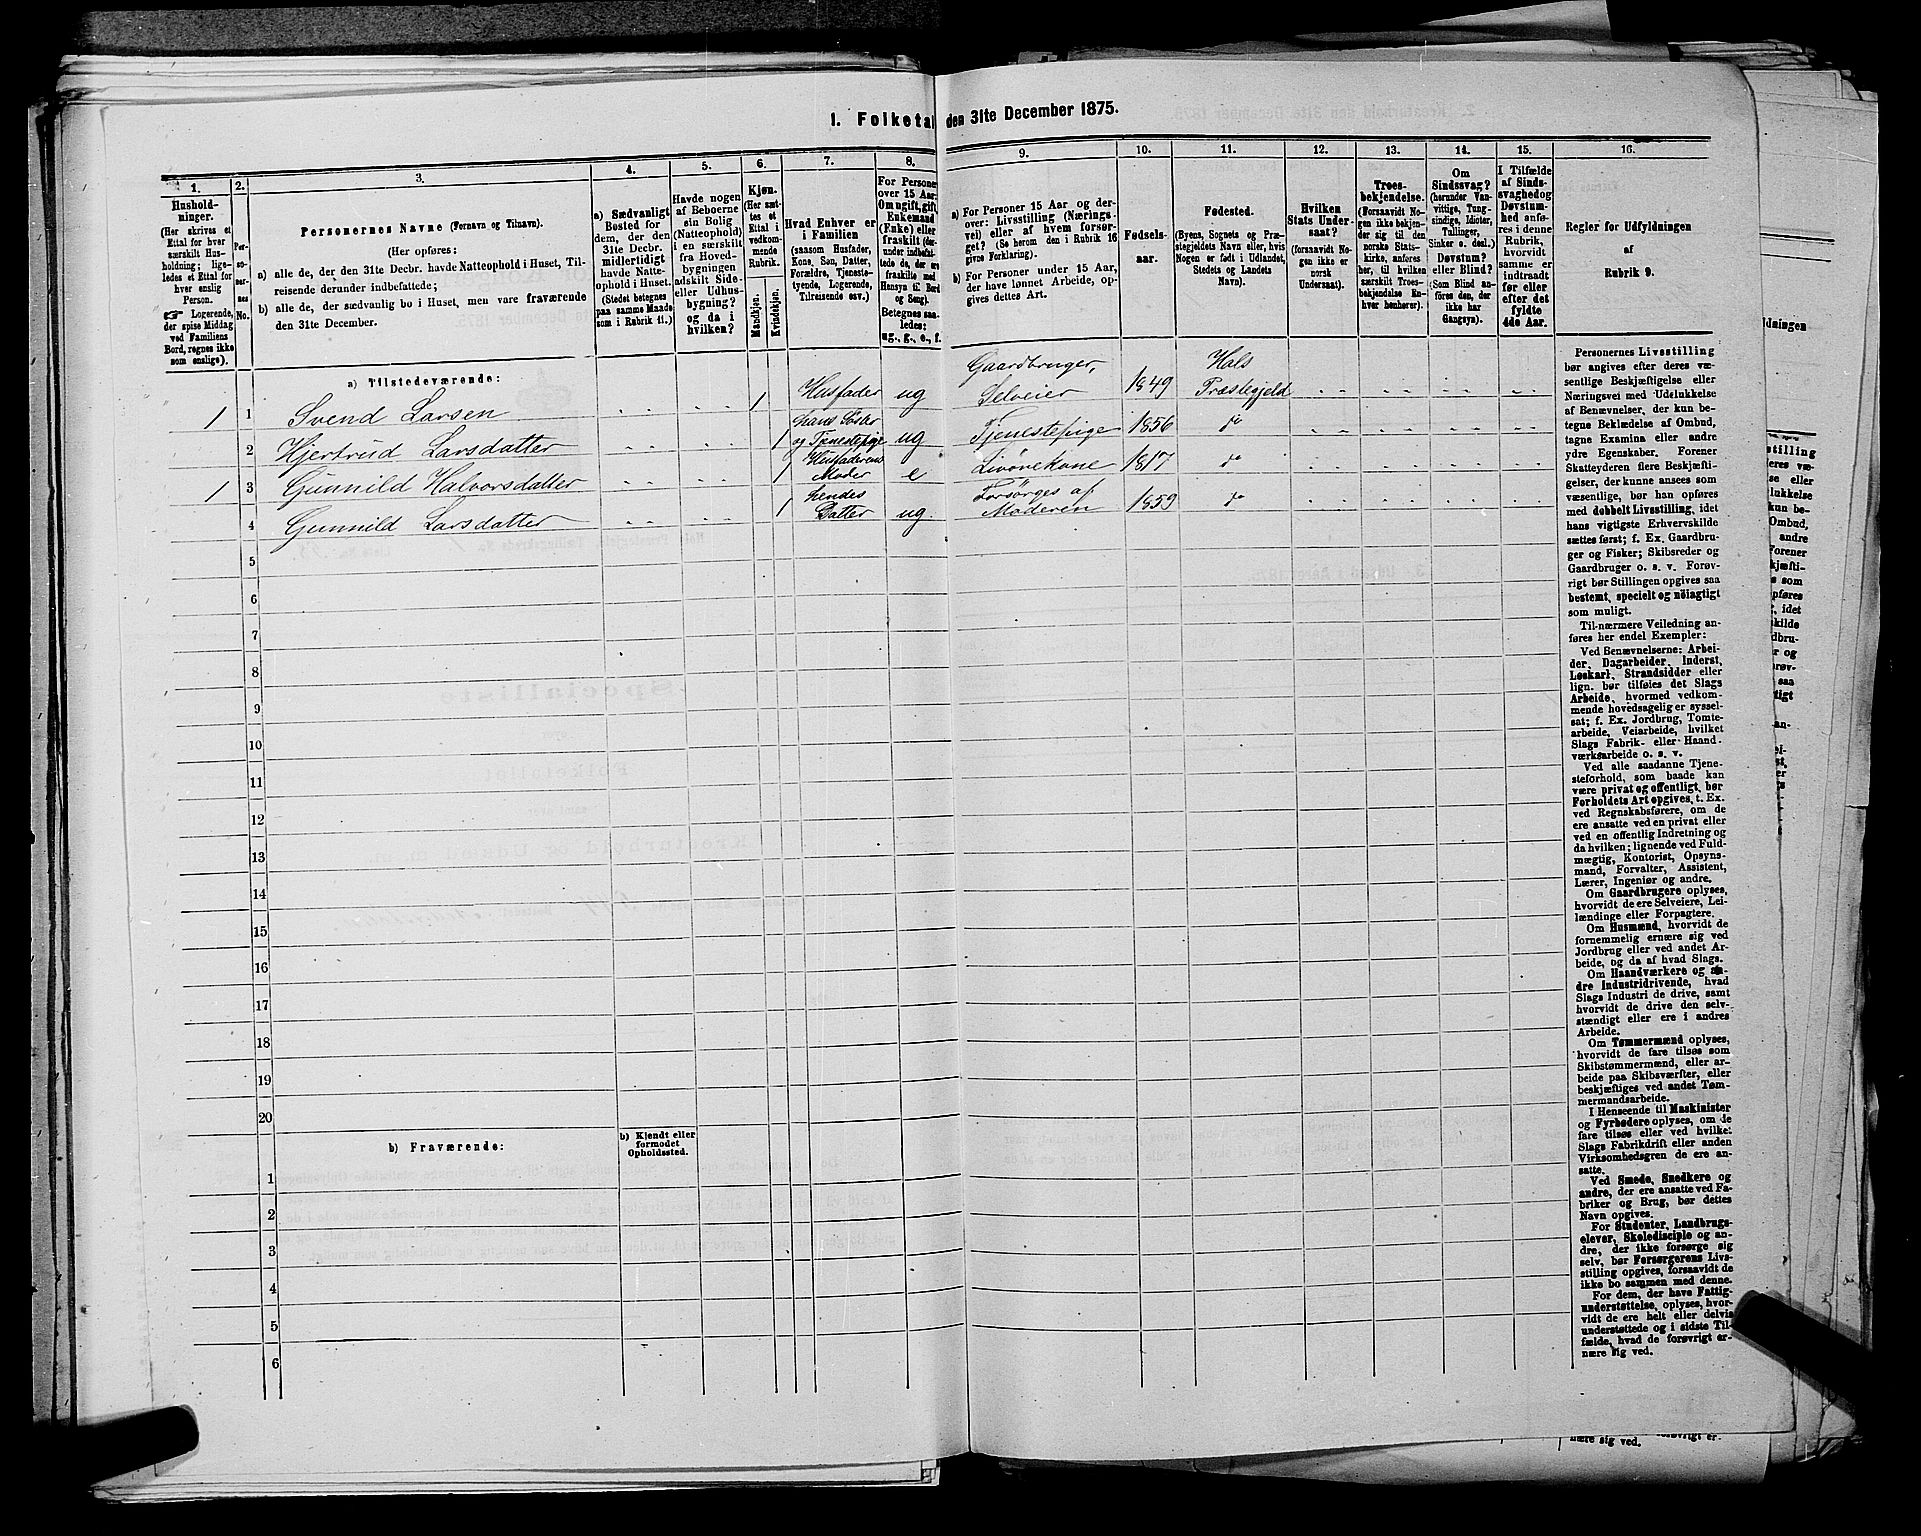 1. Folketal den 31te December 1875.
1.
2.
3.
4.
5.
6.
7.
8.
9.
10.
11.
12.
13.
14.
15.
16.
Hushold-
ninger.
(Her skrives et
Ettal for hver
særskilt Hus-
holdning; lige-
ledes et Ettal for
hver enslig
Person.
☞ Logerende,
der spise Middag
ved Familiens
Bord, regnes ikke
som enslige).
Per-
so-
ner-
nes
No.
Personernes Navne (Fornavn og Tilnavn).
(Her opføres:
a) alle de, der den 31te Decbr. havde Natteophold i Huset, Til-
reisende derunder indbefattede;
b) alle de, der sædvanlig bo i Huset, men vare fraværende
den 31te December.
a) Sædvanligt
Bosted for
dem, der den
31te Decbr.
midlertidigt
havde Natte-
ophold i Huset.
(Stedet betegnes
paa samme Maade
som i Rubrik 11.)
Havde nogen
af Beboerne
sin Bolig
(Natteophold)
i en særskilt
fra Hoved-
bygningen
adskilt Side-
eller Udhus-
bygning?
og da i
hvilken?
Kjøn.
(Her sæt-
tes et
Ettal i
vedkom-
mende
Rubrik.
Mandkjøn.
Kvindekjøn.
Hvad Enhver er
i Familien
(saasom Husfader,
Kone, Søn, Datter,
Forældre, Tjeneste-
tyende, Logerende,
Tilreisende osv.)
For Personer
over 15 Aar:
Om ugift, gift,
Enkemand
(Enke) eller
fraskilt (der-
under indbefat-
tede de, der ere
fraskilte med
Hensyn til Bord
og Seng).
Betegnes saa-
ledes:
ug., g., e., f.
a) For Personer 15 Aar og der-
over: Livsstilling (Nærings-
vei) eller af hvem forsør-
get? (Se herom den i Rubrik 16
givne Forklaring).
b) For Personer under 15 Aar,
der have lønnet Arbeide, op-
gives dettes Art.
Fødsels-
aar.
Fødested.
(Byens, Sognets og Præ-
stegjeldets Navn eller, hvis
Nogen er født i Udlandet,
Stedets og Landets
Navn).
Hvilken
Stats Under-
saat?
(forsaavidt No-
gen ikke er
norsk
Undersaat).
Troes-
bekjendelse.
(Forsaavidt No-
gen ikke bekjen-
der sig til den
norske Stats-
kirke, anføres
her, til hvilken
særskilt Troes-
bekjendelse En-
hver henhører).
Om
Sindssvag?
(herunder Van-
vittige, Tung-
sindige, Idioter,
Tullinger,
Sinker o. desl.)
Døvstum?
eller Blind?
(Som Blind an-
føres den, der
ikke har
Gangsyn).
I Tilfælde
af Sinds-
svaghed og
Døvstum-
hed anfø-
res i denne
Rubrik,
hvorvidt
samme er
indtraadt
før eller
efter det
fyldte
4de Aar.
Regler for Udfyldningen
af
Rubrik 9.
a) Tilstedeværende:
1 1 Svend Larsen 1 Husfader ug Gaardbruger, Selveier 1849 Hals Præstegjeld
2 Hjertrud Larsdatter 1 hans Søster og Tjenestepige ug Tjenestepige 1856 do
1 3 Gunnild Halvorsdatter 1 Husfaderens Moder e Livørekone 1817 do
4 Gunnild Larsdatter 1 hendes Datter ug. Forsørges af Moderen 1859 do
5
6
7
8
9
10
11
12
13
14
15
16
17
18
19
20
b) Fraværende:
b) Kjendt eller
formodet
Opholdssted.
1
2
3
4
5
6
Personernes Livsstilling
bør angives efter deres væ-
sentlige Beskjæftigelse eller
Næringsvei med Udelukkelse
af Benævnelser, der kun be-
tegne Beklædelse af Ombud,
tagne Examina eller andre
ydre Egenskaber. Forener
Skatteyderen flere Beskjæfti-
gelser, der kunne ansees som
væsentlige, bør han opføres
med dobbelt Livsstilling, idet
hans vigtigste Erhvervskilde
sættes først; f. Ex. Gaardbru-
ger og Fisker; Skibsreder og
Gaardbruger o. s. v. Forøv-
rigt bør Stillingen opgives saa
bestemt, specielt og nøiagtigt
som muligt.
Til nærmere Veiledning an-
føres her endel Exempler:
Ved Benævnelserne: Arbei-
der, Dagarbeider, Inderst,
Løskarl, Strandsidder eller
lign. bør tilføies det Slags
Arbeide, hvormed vedkom-
mende hovedsagelig er syssel-
sat; f. Ex. Jordbrug, Tomte-
arbeide, Veiarbeide, hvilket
Slags Fabrik- eller Haand-
værksarbeide o. s. v.
Ved alle saadanne Tjene-
steforhold, som baade kan
være privat og offentligt, bør
Forholdets Art opgives, t. Ex.
ved Regnskabsførere, om de
ere ansatte ved en privat eller
ved en offentlig Indretning og
da hvilken; lignende ved Fuld-
mægtig, Kontorist, Opsyns-
mand, Forvalter, Assistent,
Lærer, Ingeniør og andre.
Om Gaardbrugere oplyses,
hvorvidt de ere Selveiere, Lei-
lændinge eller Forpagtere.
Om Husmænd, hvorvidt de
fornemmelig ernære sig ved
Jordbrug eller ved andet Ar-
beide, og da af hvad Slags.
Om Haandværkere og an-
dre Industridrivende, hvad
Slags Industri de drive, samt
hvorvidt de drive den selv-
stændigt eller ere i andres
Arbeide.
Om Tømmermænd oplyses,
hvorvidt de fare tilsøs som
Skibstømmermænd, eller ar-
beide paa Skibsværfter, eller
beskjæftiges ved andet Tøm-
mermandsarbeide.
I Henseende til Maskinister
og Fyrbødere oplyses, om de
fare tilsøs eller ved hvilket
Slags Fabrikdrift eller anden
Virksomhedsgren de ere an-
satte.
Ved Smede, Snedkere og
andre, der ere ansatte ved Fa-
briker og Brug, bør dettes
Navn opgives.
For Studenter, Landbrugs-
elever, Skoledisciple og an-
dre, der ikke forsørge sig
selv, bør Forsørgerens Livs-
stilling opgives, forsaavidt de
ikke bo sammen med denne.
For dem, der have Fattig-
understøttelse, oplyses, hvor-
vidt de ere helt eller delvis
understøttede og i sidste Til-
fælde, hvad de forøvrigt er-
nære sig ved.